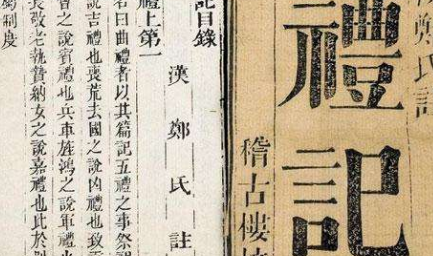 鄭氏
禮記
稽古樓
記目錄
漢鄭氏註
禮上第一
名曰曲禮者以其篇記五禮之事祭
說吉禮也喪荒去國之說凶禮也致
會之說賓禮也兵車旌鴻之說軍禮
長敬老執贄納女之說嘉禮也此於
制度